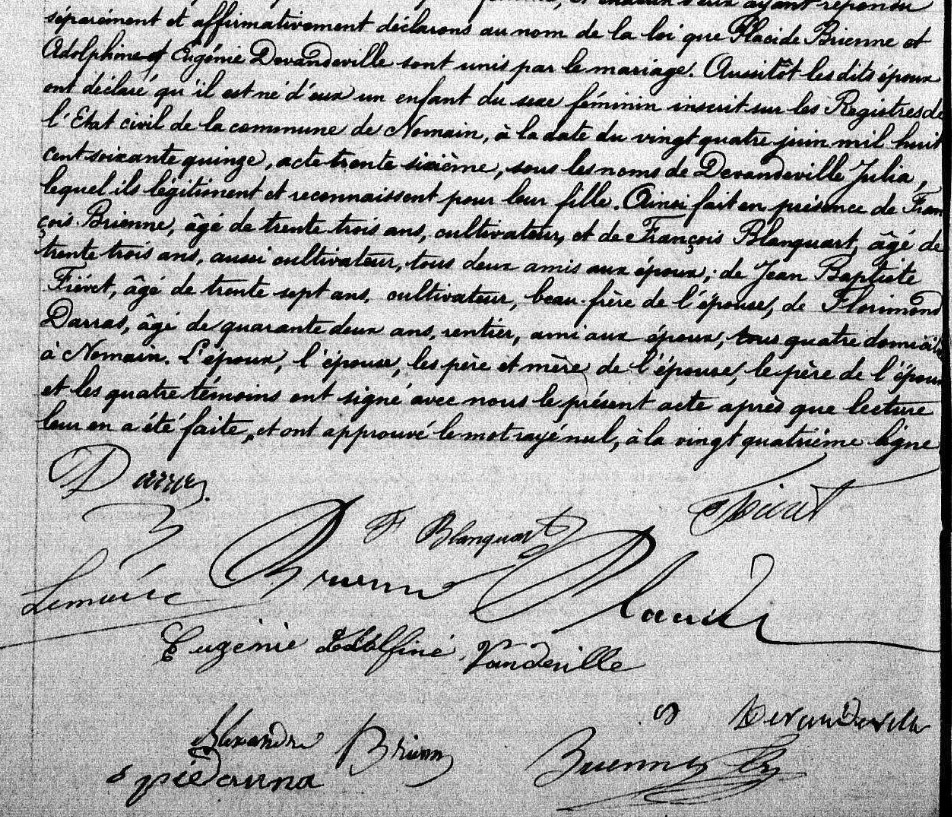 et chacun d'eux ayant répondu
séparément et affirmativement déclarons au nom de la loi que Placide Brienne et
Adolphine Eugénie Devandeville sont unis par le mariage. Aussitôt les dits époux
ont déclaré qu'il est né d'eux un enfant du sexe féminin inscrit sur les Registres de
l'Etat civil de la commune de Nomain, à la date du vingt quatre juin mil huit
cent soixante quinze, acte trente sixième, sous les noms de Devandeville Julia,
lequel ils légitiment et reconnaissent pour leur fille. Ainsi fait en présence de Fran
çois Brienne, âgé de trente trois ans, cultivateur, et de François Blanquart, âgé de
trente trois ans, aussi cultivateur, tous deux amis aux époux; de Jean Baptiste
Fiévet, âgé de trente sept ans, cultivateur, beau-frère de l'épouse, de Florimond
Darras, âgé de quarante deux ans, rentier, ami aux époux, tous quatre domicil
à Nomain. L'époux, l'épouse, les père et mère de l'épouse, le père de l'époux
et les quatre témoins ont signé avec nous le présent acte après que lecture
leur en a été faite, et ont approuvé le mot rayé nul, à la vingt quatrième ligne
Darras
F Blanquart
Brienne Placide
Eugénie Vandeville
Devandeville
Alexandre Brienn
Brienne